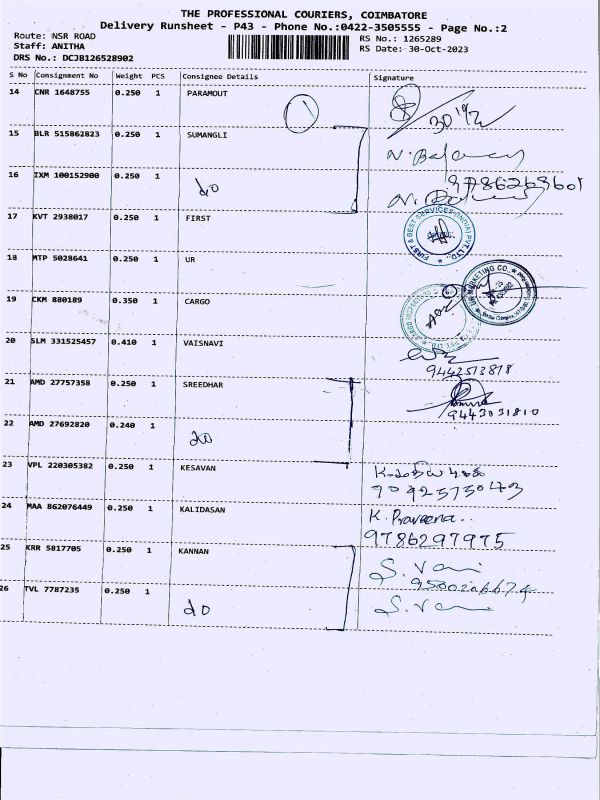 THE PROFESSIONAL COURIERS, COIMBATORE
Delivery Runsheet - P43 - Phone No.:0422-3505555 - Page No.:2
Route: NSR ROAD RS No.: 1265289
Staff: ANITHA RS Date: 30-Oct-2023
DRS No.: DCJB126528902
S No Consignment No Weight PCS Consignee Details Signature
14 CNR 1648755 0.250 1 PARAMOUT
1
15 BLR 515862823 0.250 1 SUMANGLI
16 IXM 100152900 0.250 1 do 9786268601
17 KVT 2938017 0.250 1 FIRST
FIRST & BEST SERVICES (INDIA) PVT. LTD.
18 MTP 5028641 0.250 1 UR
UR MARKETING CO.,
19 CKM 880189 0.350 1 CARGO
20 SLM 331525457 0.410 1 VAISNAVI
9442513818
21 AMD 27757358 0.250 1 SREEDHAR
9443031810
22 AMD 27692820 0.240 1 do
23 VPL 220305382 0.250 1 KESAVAN
9092575043
24 MAA 862076449 0.250 1 KALIDASAN K. Praveena..
9786297975
25 KRR 5817705 0.250 1 KANNAN S. Vani
26 TVL 7787235 0.250 1 do S. Vani